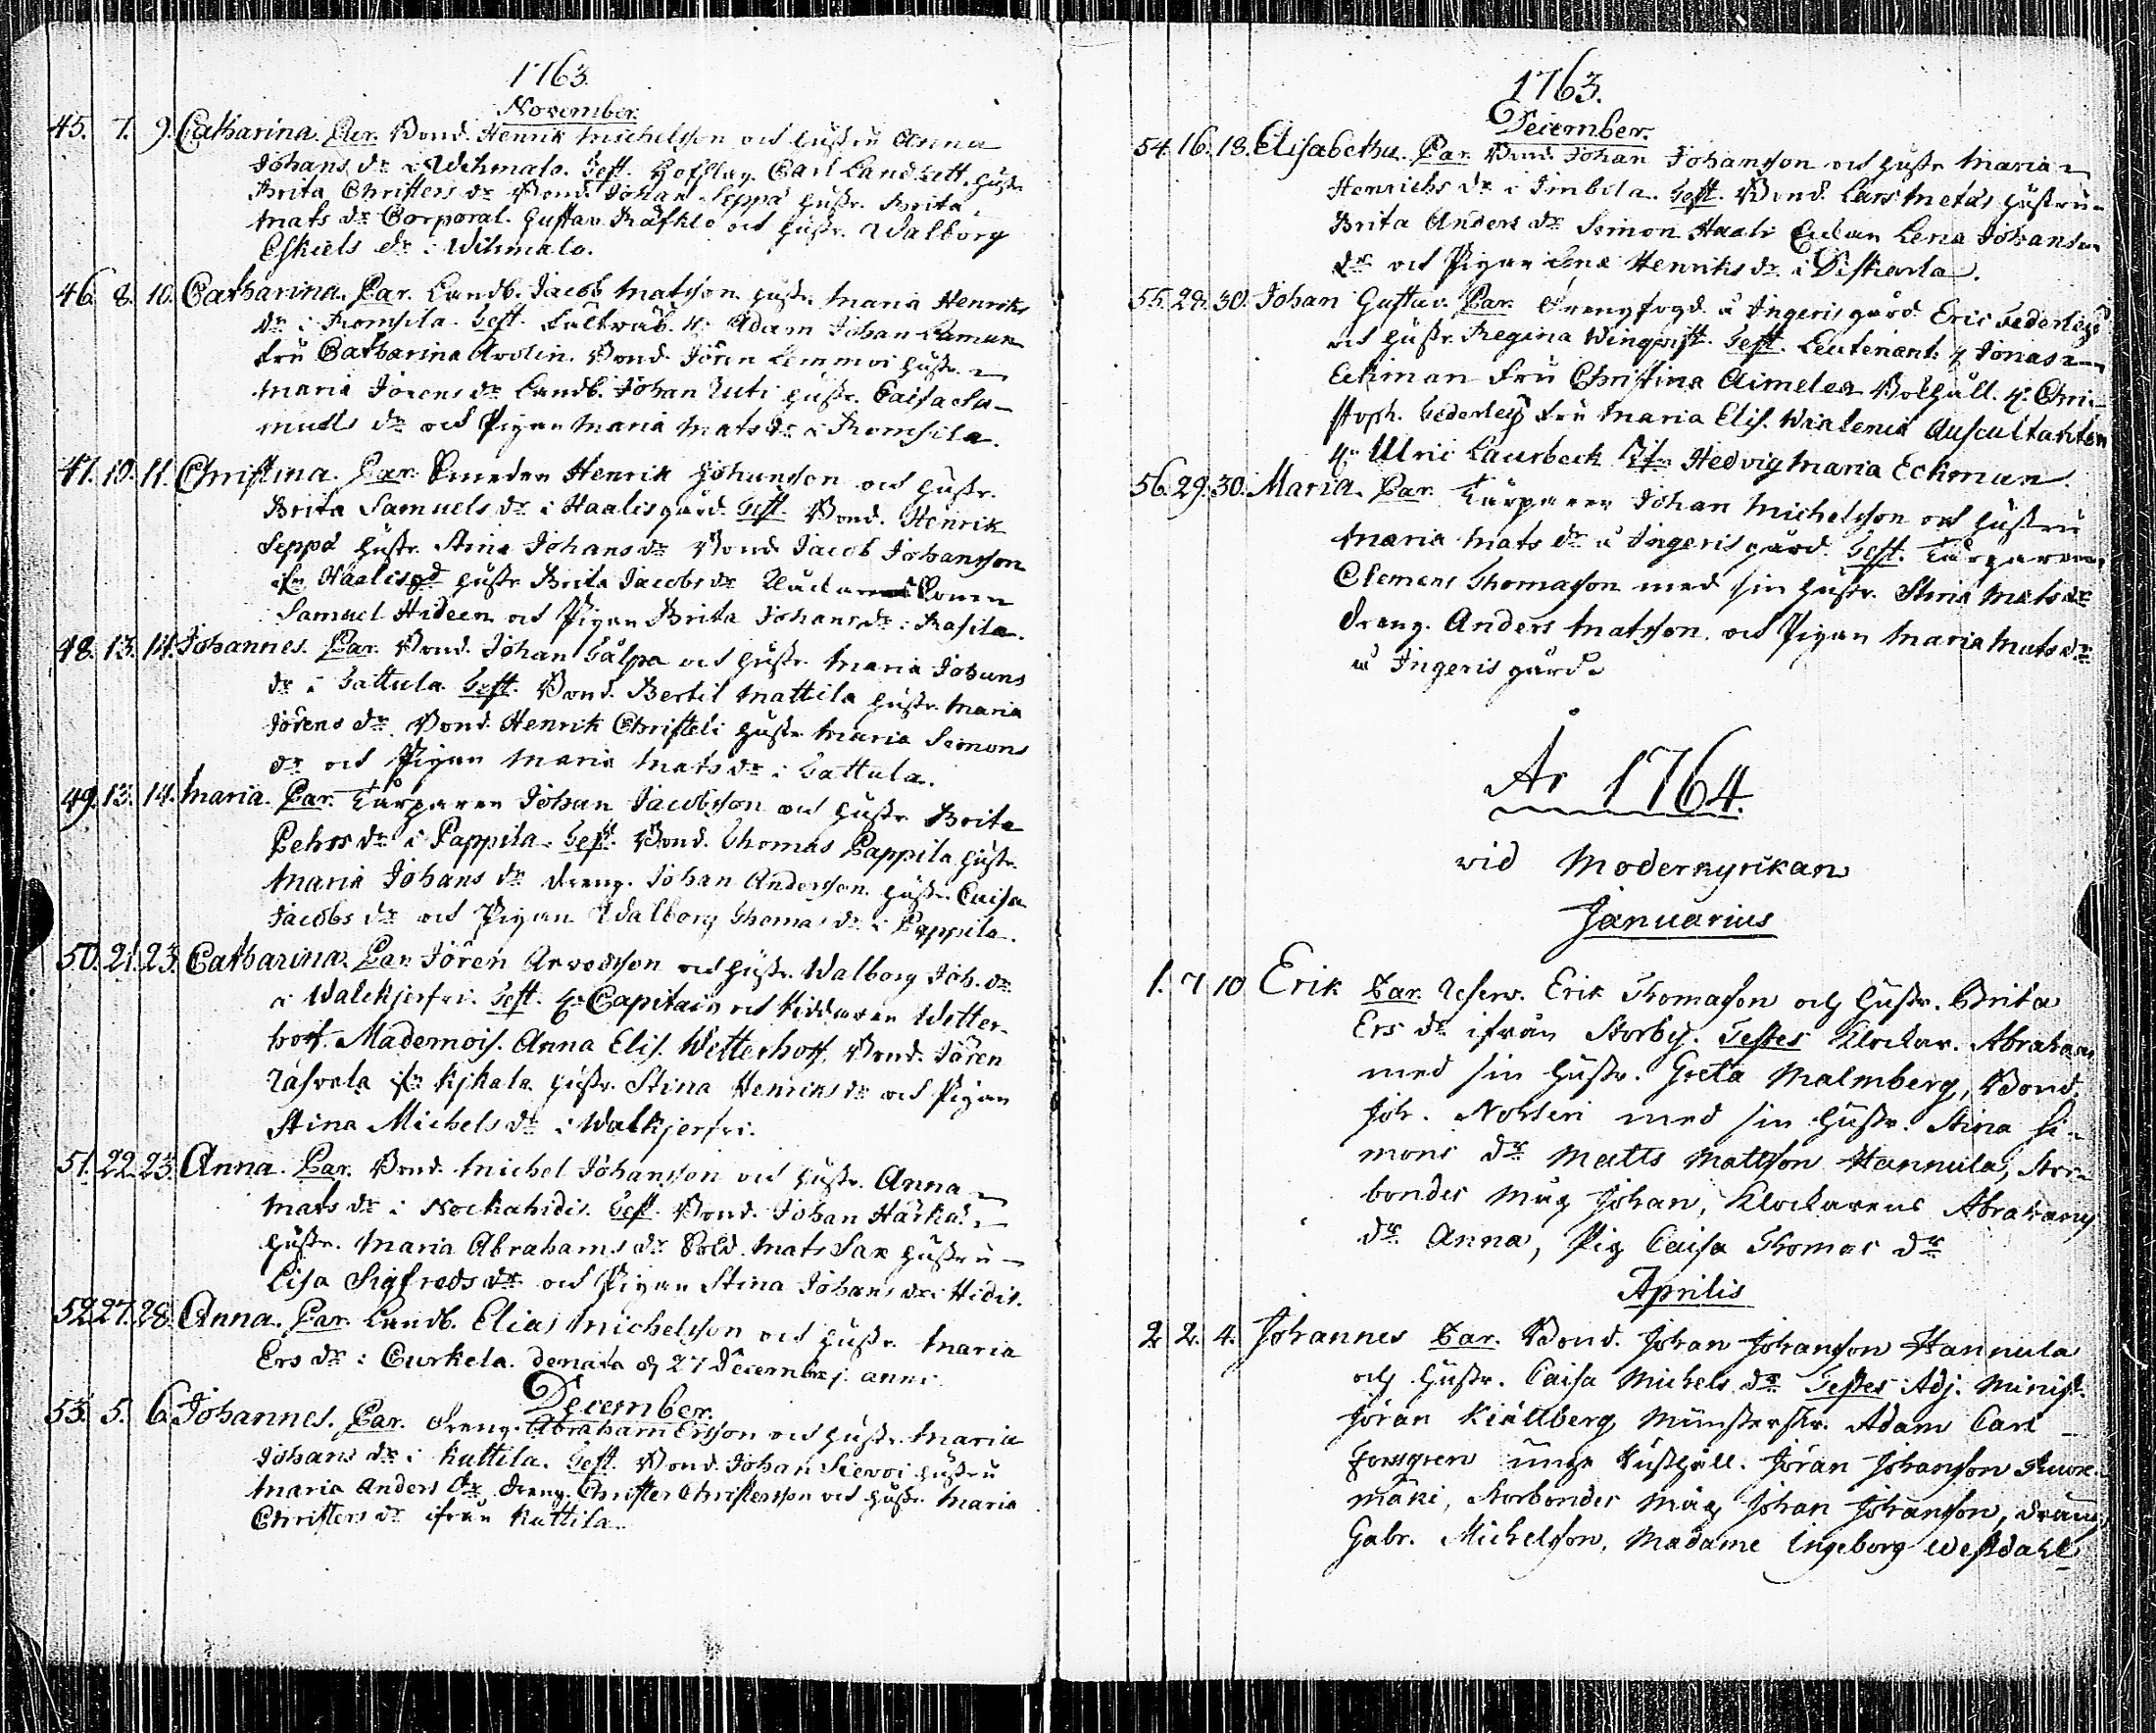 1763.
November.
45. 7. 9. Catharina. Par. Bond. Henrik Michelsson och hustru Anna
Johans dr i Wihmalo. Test. Carl Landzett. hustr.
Brita Christers dr Bond. Johan Seppä hustr. Brita
Mats dr Corporal. Gustav Räfklo och hustr. Walborg
Eskiels dr i Wihmalo.
46. 8. 10. Catharina. Par. Landb. Jacob Matsson hustr. Maria Henriks
dr i Romsila. Test. Fältwäb. H. Adam Johan
Fru Catharina Arolin. Bond. Jören Lemmoi hustr.
Maria Jörens dr Landb. Johan Uuti hustr. Caisa Sa-
muels dr och Pigan Maria Mats dr i Romsila.
47. 10. 11. Christina. Par. Smeden Henrik Johansson och hustr.
Brita Samuels dr i Haalisgård. Test. Bond. Henrik
Seppä hustr. Stina Johans dr Bond Jacob Johansson
ifrn Haalisgd hustr Brita Jacobs dr
Samuel Hideen och Pigan Brita Johans dr i Rasila.
48. 13. 14. Johannes. Par. Bond. Johan Talpa och hustr. Maria Johans
dr i Tattula. Test. Bond. Bertil Mattila hustr. Maria
Jörens dr. Bond. Henrik Christeli hustr Maria Simons
dr och Pigan Maria Mats dr i Tattula.
49. 13. 14. Maria. Par. Torparen Johan Jacobsson och hustr Brita
Pehrs dr i Pappila. Test. Bond. Thomas Pappila hustr.
Maria Johans dr dreng. Johan Andersson hustr. Caisa
Jacobs dr och Pigan Walborg Thomas dr i Pappila.
50. 21. 23. Catharina. Par. Jören Arvedsson och hustr. Walborg Joh. dr
i Walckjerfvi. Test. Hr Capitain och Riddaren Wetter-
hoff. Mademois. Anna Elis. Wetterhoff. Bond. Jören
Räsvala ifrn Kjkala hustr. Stina Henriks dr och Pigan
Stina Michels dr i Walkjerfvi.
51. 22. 23. Anna. Par. Bond. Michel Johansson och hustr. Anna
Mats dr i Nockahidis. Test. Bond. Johan Härkä.
hustr. Maria Abrahams dr Sold. Mats Sax hustru
Lisa Sigfreds dr och Pigan Stina Johans dr i Hidis.
52. 27. 28. Anna. Par. Landb. Elias Michelsson och hustr. Maria
Ers dr i Curkela. Denata d 27 Decembr j. anni
December.
53. 5. 6. Johannes. Par. dreng. Abraham Ersson och hustr. Maria
Johans dr i Kuttila. Test. Bond. Johan Sievoi hustru
Maria Anders dr dreng. Christer Christersson och hustr Maria
Christers dr ifrån Kuttila.
1763.
December.
54. 16. 18. Elisabetha. Par. Bond. Johan Johansson och hustr Maria
Henrichs dr i Imbola. Test. Bond. Lars Metäs hustru
Brita Anders dr Simon Haali Enkan Lena Johans
dr och Pigan Lena Henriks dr i Diskarla.
55. 28. 30. Johan Gustav. Par. Drengfogd. å Ingerisgård Eric Federley
och hustr. Regina Wingqvist. Test. Leutenant. H Jonas
Eckman Fru Christina Aimelea Bokhåll. Hr. Chri-
stoph. Federley Fru Maria Elis. Wialenia Auscultanten
Hr Ulric Laurbeck Hedvig Maria Eckman.
56. 29. 30. Maria. Par. Torparen Johan Michelsson och hustru
Maria Mats dr å Ingerisgård. Test. Torparen
Clemens Thomasson med sin hustr. Stina Mats dr
dreng. Anders Matsson, och Pigan Maria Mats dr
å Ingerisgård.
År 1764.
vid Moderkyrkan
Januarius
1. 7 10 Erik Par. Reserv. Erik Thomasson och hustr. Brita
Ers dr ifrån Storby. Testes Klockar. Abraham
med sin hustr. Greta Malmberg, Bond.
Joh. Nohteri med sin hustr. Stina Si-
mons dr Matts Mattsson Hannula, Stor-
bondes måg Johan, Klockarens Abrahams
dr Anna, Pig Caisa Thomas dr
Aprilis
2. 2. 4. Johannes Par. Bond. Johan Johansson Hannula
och hustr. Caisa Michels dr Testes Adj. Minist.
Jöran Kiällberg Münsterskr. Adam Carl
Forsgren unge Rusthåll. Jöran Johansson
mäki, Storbondes måg Johan Johansson, dräng
Gabr. Michelsson, Madame Ingeborg Westdahl